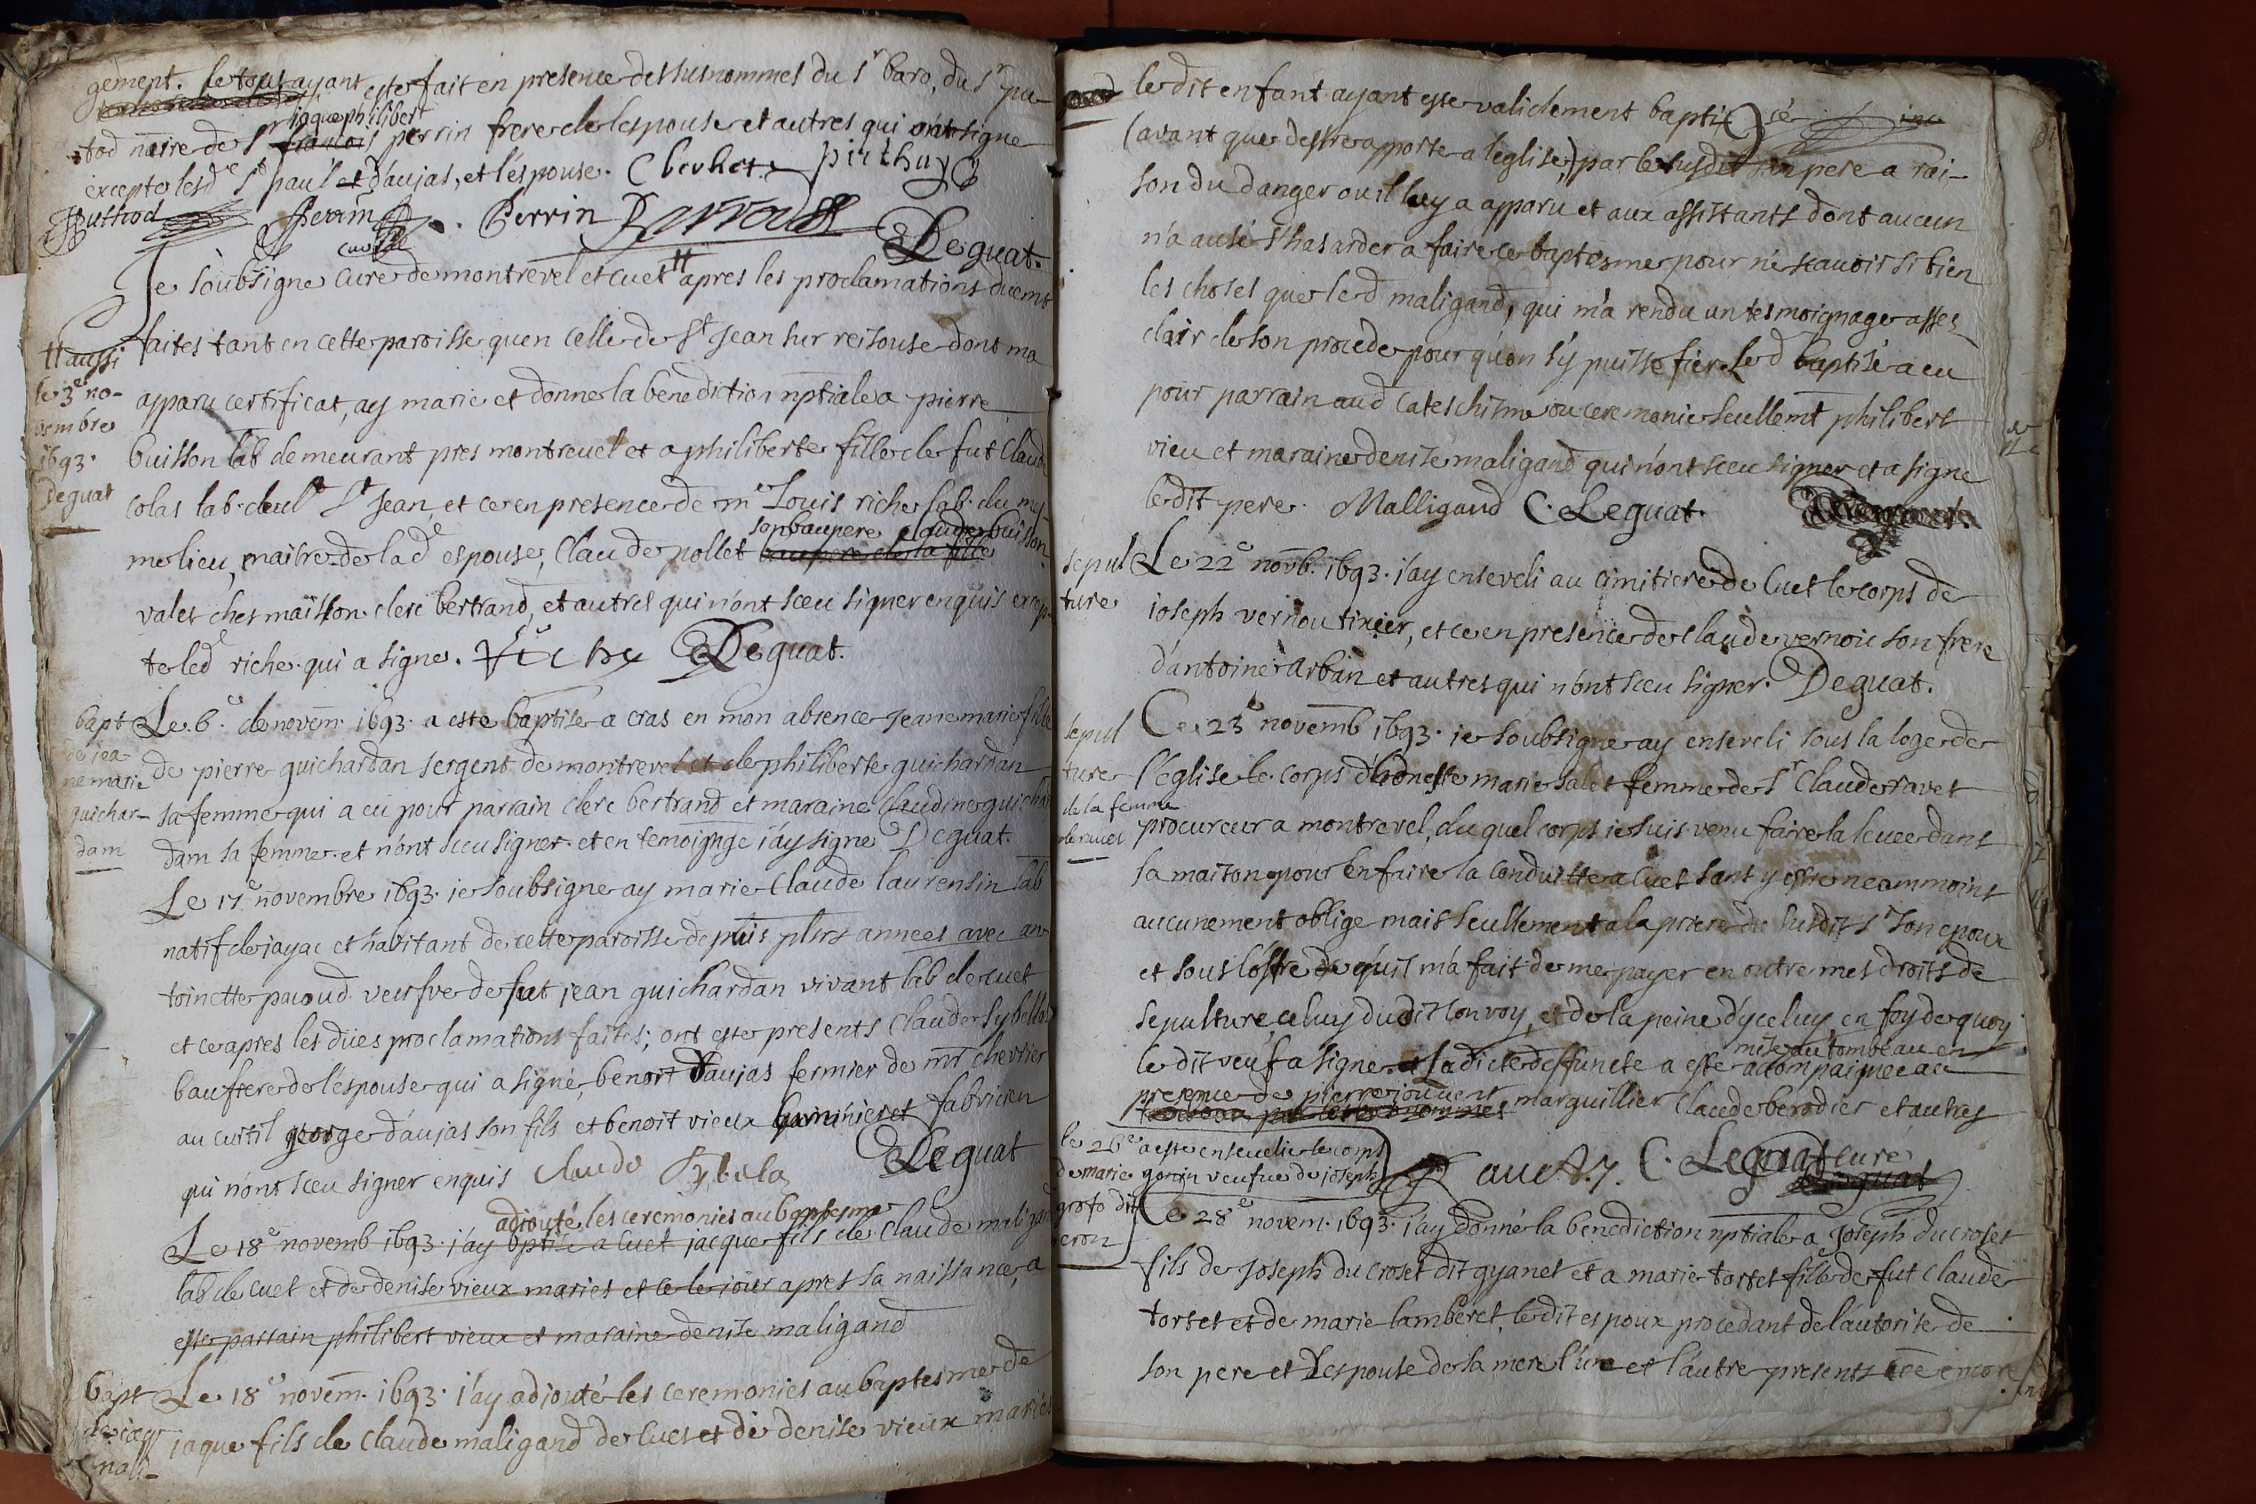 gement. le tout ayant este fait en presence des susnommes du sr baro, du sr pu-
tod nore de sr jaque philibert perrin frere de lespouse et autres qui ont signe
excepte lesd St paul et daujas, et l'espouse. Chevket pirthuy
Puthod perrin Perrin Deguat.
Je soubsigne cure de montrevel et cuet tt apres les proclamations duemt
faites tant en cette paroisse quen celle de St Jean sur reisouse dont ma
tt aussi
le 3e no-
vembre
1693.
Deguat
apparu certificat, ay marie et donne la benediction nptiale a pierre
buisson lab demeurant pres montrevel et a philiberte fille de fut Claude
colas lab. dud St Jean, et ce en presence de me Louis riche lab. du my-
melieu, maitre de lade espouse, Claude pollet son baupere claude buisson
valet ches maisson clerc bertrand, et autres qui n'ont sceu signer enquis excep-
te led riche qui a signe. Riche Deguat.
bapt
de jea-
ne marie
guichar-
dam
Le 6e de novem. 1693. a este baptise a cras en mon absence Jeane marie fille
de pierre guichardan sergent de montrevel et de philiberte guichardan
sa femme qui a eu pour parrain clerc bertrand et maraine claudine guichar
dam sa femme. et n'ont sceu signer. et en temoignge j'ay signe Deguat.
Le 17e novembre 1693. je soubsigne ay marie Claude laurensin lab
natif de jayac et habitant de cette paroisse depuis plusrs annees avec an-
toinette pacoud veufve de fut jean guichardan vivant lab de cuet
et ce apres les dües proclamations faites; ont este presents Claude sybella
baufrere de l'espouse qui a signé, benoit daujas fermier de mr chevrier
au curtil george daujas son fils et benoit vieux fabricien
qui n'ont sceu signer enquis Claude Sybela Deguat
adjouté les ceremonies au baptesme
Le 18e novemb 1693. j'ay bptise a cuet jacque fils de Claude maligand
lab de cuet et de denise vieux maries et ce le jour apres sa naissance, a
este parrain philibert vieux et maraine denise maligand
bapt
de jacq
mali-
Le 18e novem. 1693. j'ay adjouté les ceremonies au baptesme de
jaque fils de Claude maligand de cuet et de denise vieux mariés
gand
le dit enfant ayant este validement baptisé
(avant que destre apporte a leglise,) par le susdit son pere a rai-
son du danger ou il luy a apparu et aux assistants dont aucun
n'a ausé s'hasarder a faire ce baptesme pour ne scavoir si bien
les choses que led maligand, qui m'a rendu un tesmoignage asses
clair de son procede pour qu'on s'y puisse fier. Led baptisé a eu
pour parrain aud cateschisme ou ceremonie seullemt philibert
vieu et maraine denise maligand qui n'ont sceu signer et a signe
ledit pere. Malligand C. Leguat.
sepul
ture
Le 22e novb. 1693. j'ay enseveli au cimitiere de Cuet le corps de
joseph vernou tixier, et ce en presence de claude vernoie son frere
d'antoine Arbain et autres qui n'ont sceu signer. Deguat.
sepul
ture
de la femme
de ravet
Ce 23e novemb 1693. je soubsigne ay enseveli sous la loge de
l'eglise le corps d'honeste marie salet femme de sr Claude ravet
procureur a montrevel, duquel corps je suis venu faire la levee dans
sa maison pour en faire la conduitte a Cuet sans y estre neammoins
aucunement oblige mais seullement a la priere du susdit sr son epoux
et sous l'offre de qu'il m'a fait de me payer en outre mes droits de
sepulture celuy dudit convoy, et de la peine d'yceluy, en foy de quoy
le dit veuf a signe. et la dicte deffuncte a este mise au tombeau en
presence de pierre jouvent marguillier Claude berodier et autres
ravet C. Leguat cure
le 26e a este ensevelie le corps
de marie gorin veufve de joseph
grofo dit
eron
Ce 28e novem. 1693. j'ay donné la benediction nptiale a Joseph du croset
fils de Joseph du croset dit gyanet et a marie tortet fille de fut Claude
tortet et de marie lamberet, ledit espoux procedant de l'autorite de
son pere et l'espouse de sa mere l'une et l'autre presents